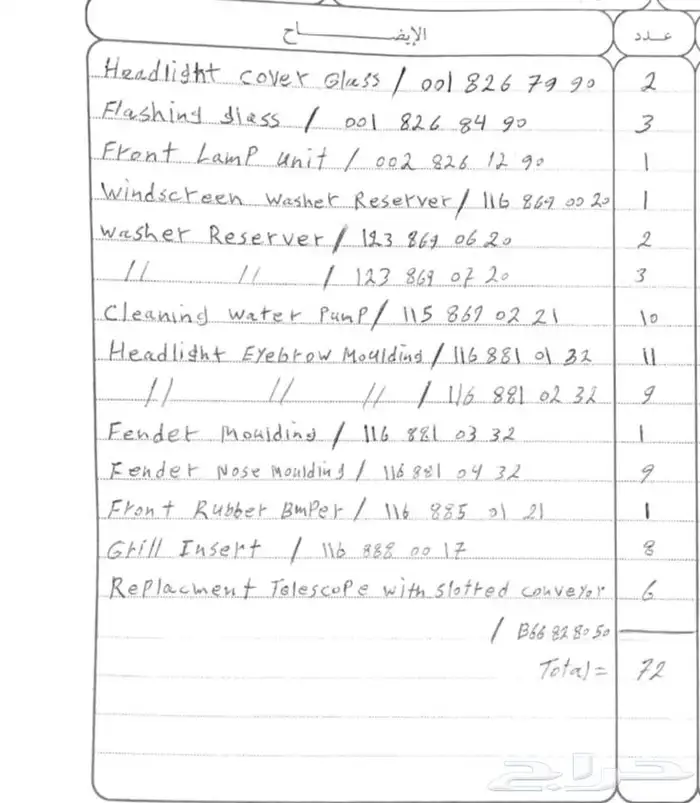 الإيضـــــــــاح عـدد
Headlight cover Glass / 001 826 79 90 2
Flashing glass / 001 826 84 90 3
Front Lamp unit / 002 826 12 90 1
Windscreen Washer Reserver / 116 869 00 20 1
Washer Reserver / 123 869 06 20 2
// // / 123 869 07 20 3
Cleaning Water Pump / 115 869 02 21 10
Headlight Eyebrow Moulding / 116 881 01 32 11
// // // / 116 881 02 32 9
Fender Moulding / 116 881 03 32 1
Fender Nose Moulding / 116 881 04 32 9
Front Rubber BmPer / 116 885 01 21 1
Grill Insert / 116 888 00 17 8
Replacment Telescope with slotted conveyor 6
/ B66 82 80 50
Total = 72
حراج